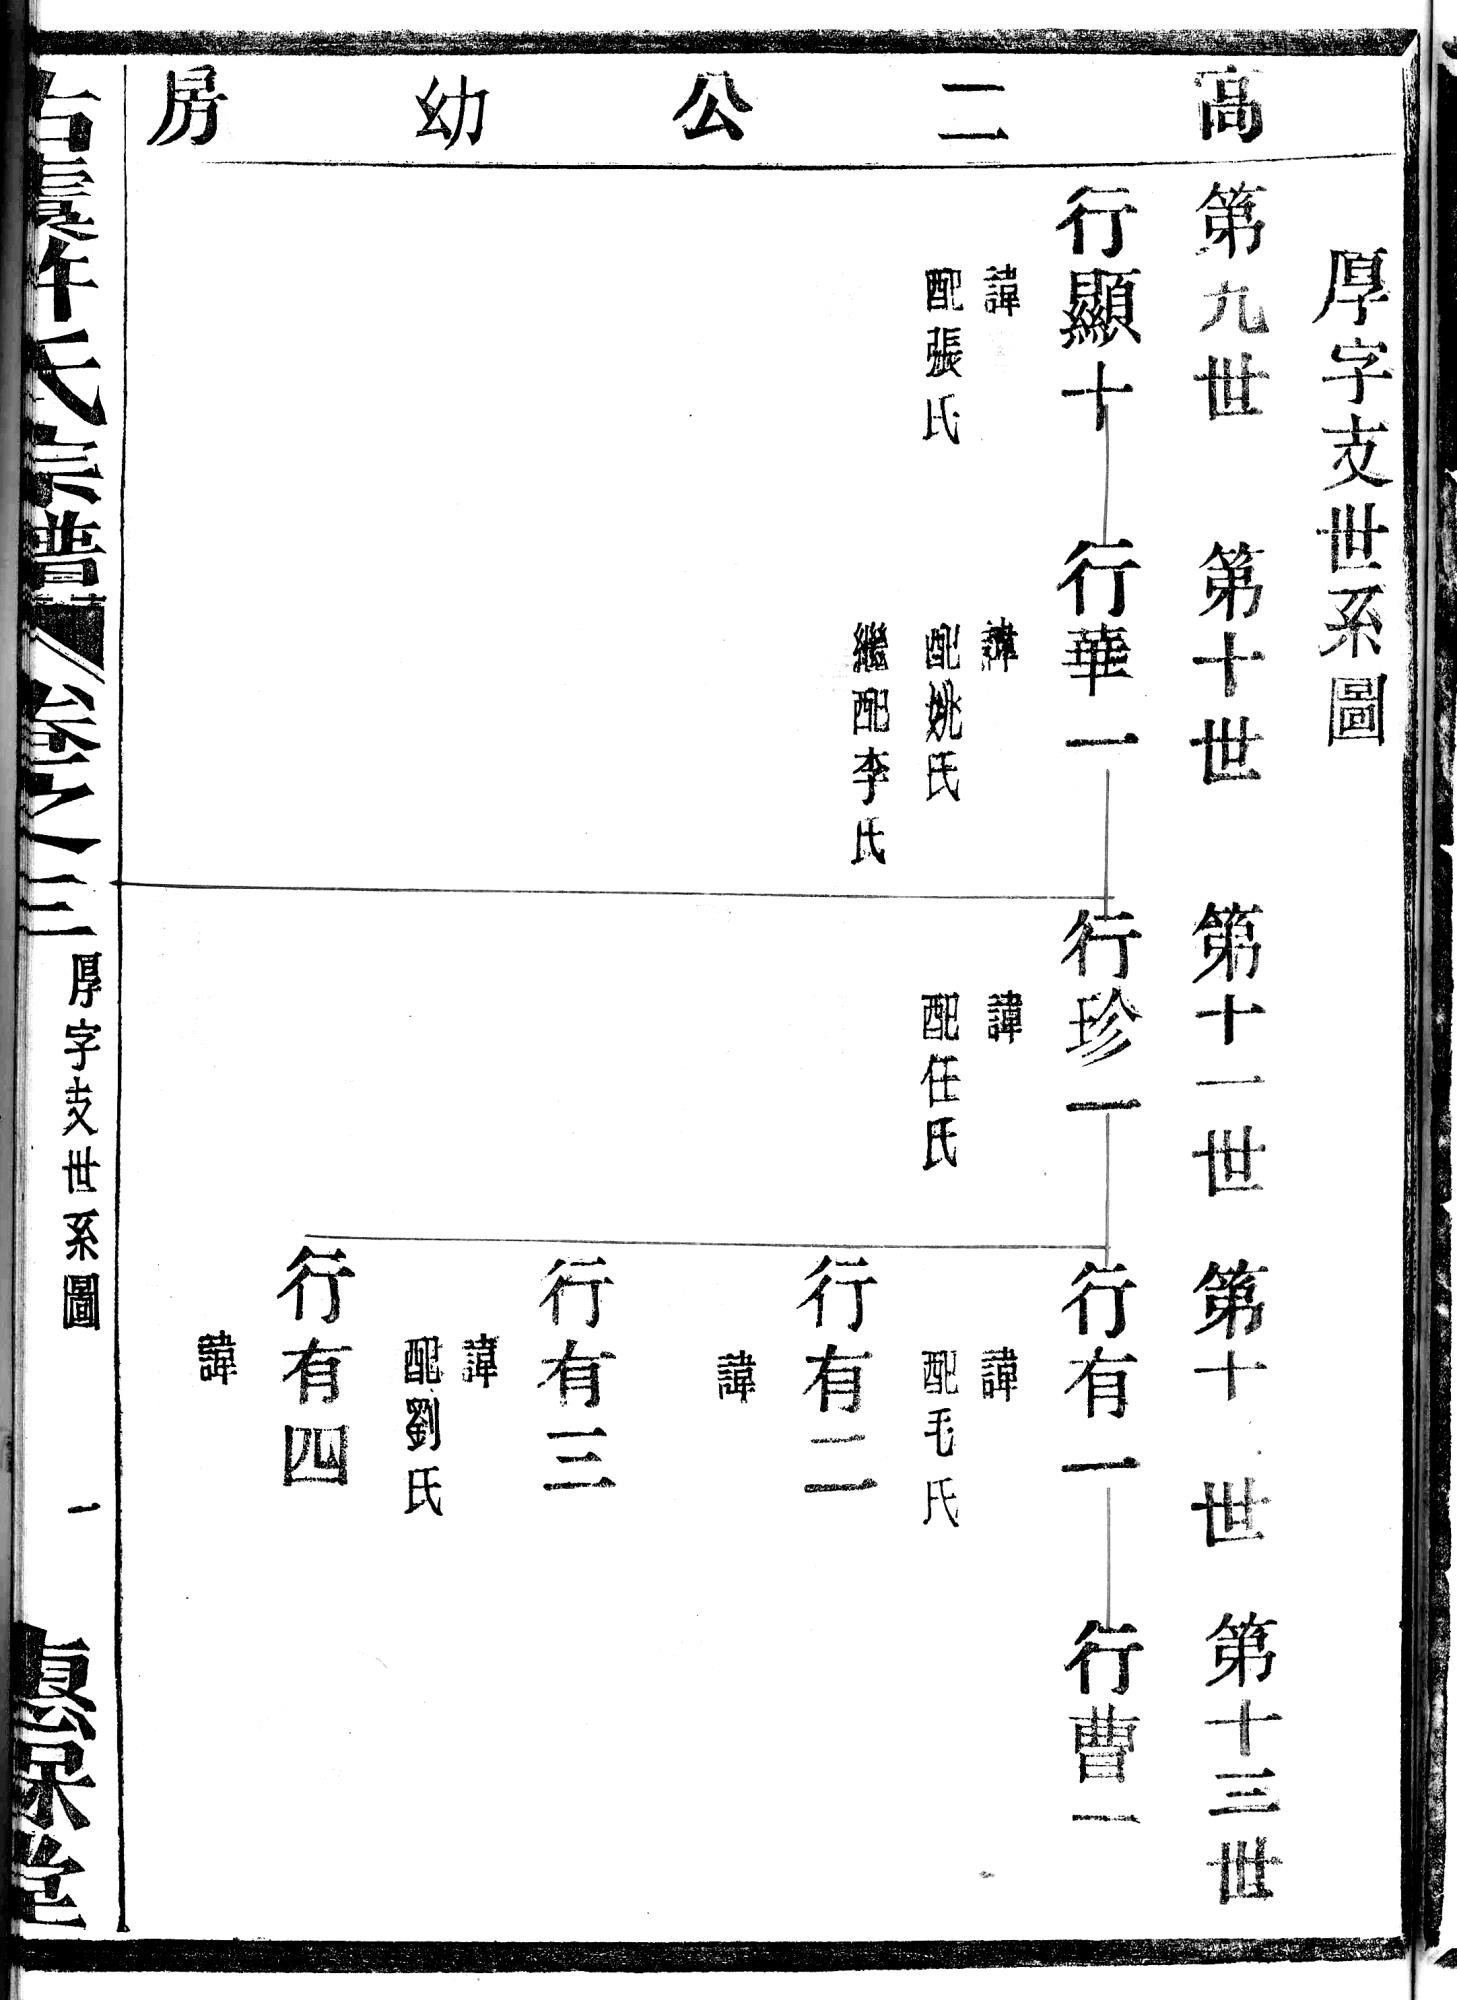 高二公幼房
厚字支世系圖
第九世
第十世
第十一世
第十 世
第十三世
行顯十
諱
配張氏
行華一
諱
配姚氏
繼配李氏
行珍一
諱
配任氏
行有一
諱
配毛氏
行有二
諱
行有三
諱
配劉氏
行有四
諱
行曹一
古虞許氏宗譜
卷之三
厚字支世系圖
一
惠保堂